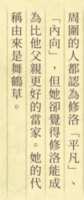 周圍的人都認為修洛「平凡」、
「內向」，但她卻覺得修洛能成
為比他父親更好的當家。她的代
稱由來是舞鶴草。